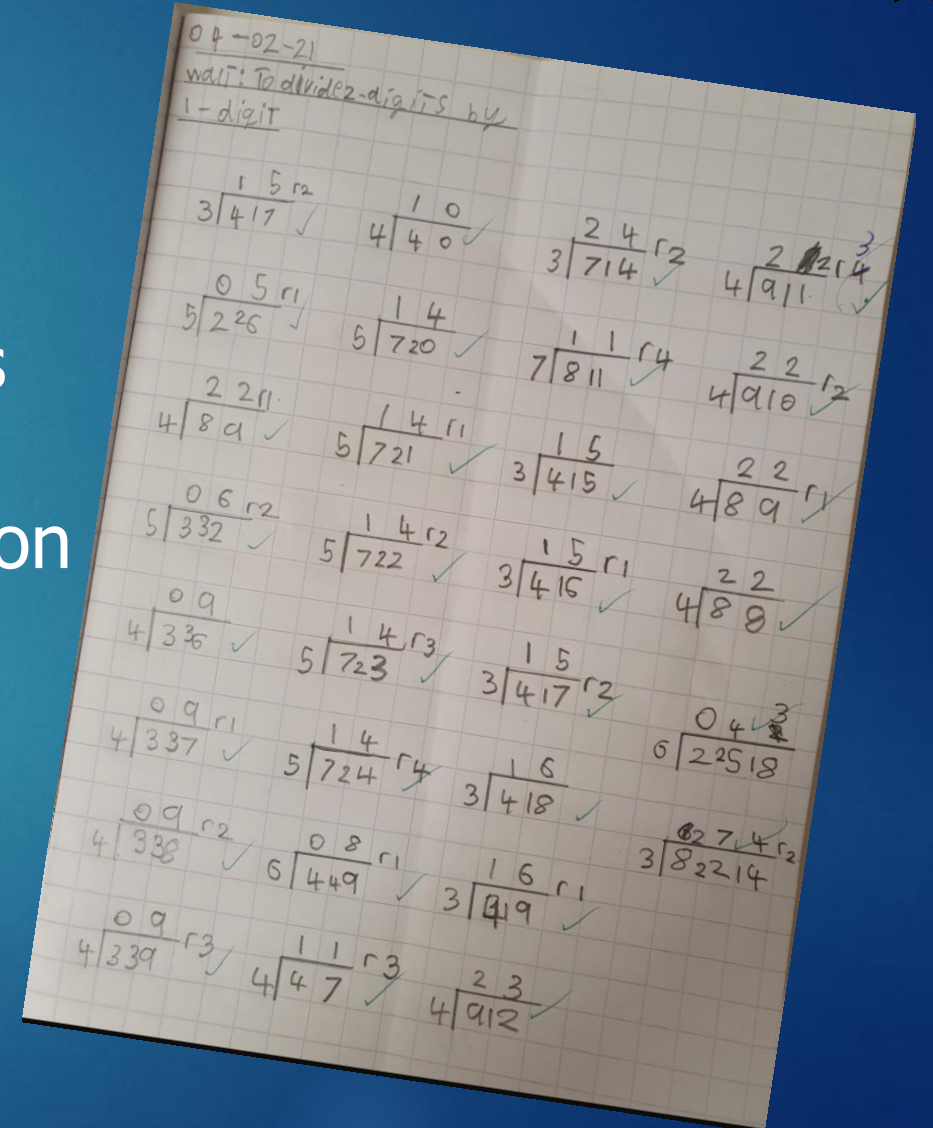 04-02-21
walt: To divide 2-digits by
1-digit
1 5 r2
3 417
0 5 r1
5 226
2 2 r1
4 8 9
0 6 r2
5 332
0 9
4 336
0 9 r1
4 337
0 9 r2
4 338
0 9 r3
4 339
1 0
4 4 0
1 4
5 720
1 4 r1
5 721
1 4 r2
5 722
1 4 r3
5 723
1 4 r4
5 724
0 8 r1
6 449
1 1 r3
4 4 7
2 4 r2
3 714
1 1 r4
7 811
1 5
3 415
1 5 r1
3 416
1 5 r2
3 417
1 6
3 418
1 6 r1
3 419
2 3
4 912
2 2 r 3
4 911
2 2 r2
4 910
2 2 r1
4 8 9
2 2
4 8 8
0 4 3
6 22518
2 7 4 r2
3 82214
s
on